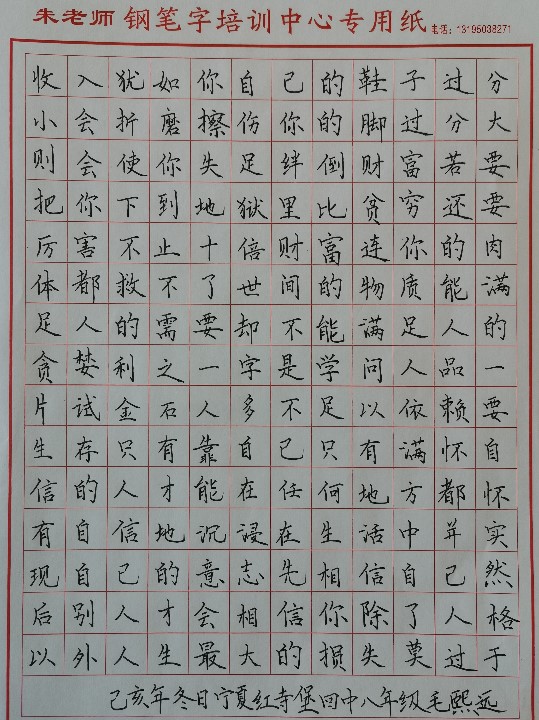 朱老师 钢笔字培训中心专用纸 电话：13195038271
收入犹如你自己的鞋子过分
小会折磨擦伤你的脚过分大
则会使你失足绊倒财富若要
把你下到地狱里比贫穷还要
厉害不止十倍财富连你的肉
体都救不了世间的物质能满
足人的需要却不能满足人的
贪婪利之一字是学问人品一
片试金石人多不足以依赖要
生存只有靠自己只有满怀自
信的人才能在任何地方都怀
有自信地沉浸在生活中并实
现自己的意志先相信自己然
后别人才会相信你除了人格
以外人生最大的损失莫过于
己亥年冬日宁夏红寺堡四中八年级毛熙远